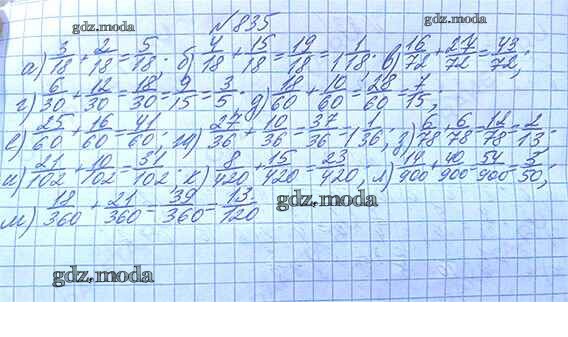 gdz.moda gdz.moda
№835
а) 3/18 + 2/18 = 5/18. б) 4/18 + 15/18 = 19/18 = 1 1/18. в) 16/72 + 27/72 = 43/72;
г) 6/30 + 12/30 = 18/30 = 9/15 = 3/5. д) 18/60 + 10/60 = 28/60 = 7/15;
е) 25/60 + 16/60 = 41/60; ж) 27/36 + 10/36 = 37/36 = 1 1/36; з) 6/78 + 6/78 = 12/78 = 2/13.
и) 21/102 + 10/102 = 31/102. к) 8/420 + 15/420 = 23/420. л) 14/900 + 40/900 = 54/900 = 3/50;
gdz.moda
м) 18/360 + 21/360 = 39/360 = 13/120
gdz.moda